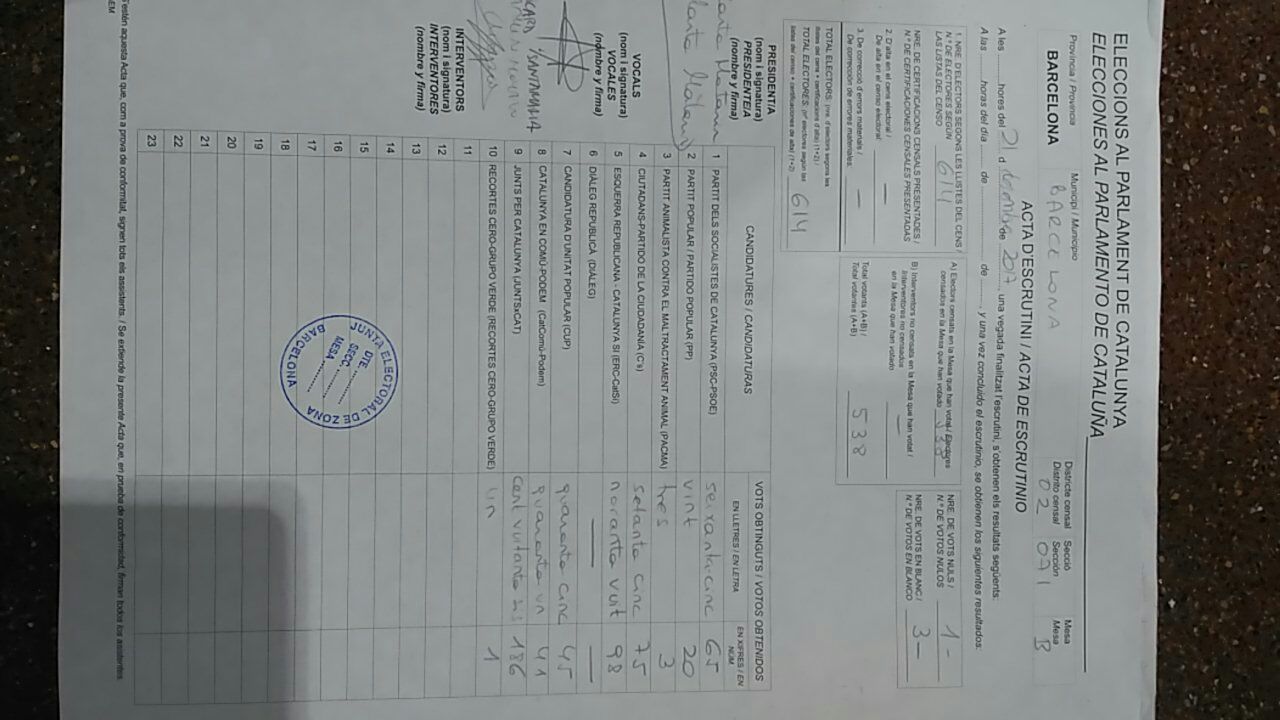 ELECCIONS AL PARLAMENT DE CATALUNYA
ELECCIONES AL PARLAMENTO DE CATALUÑA
Província / Provincia Municipi / Municipio Districte censal Secció Mesa
Distrito censal Sección Mesa
BARCELONA BARCELONA 02 071 B
ACTA D'ESCRUTINI / ACTA DE ESCRUTINIO
A les hores del 21 d de 2017, una vegada finalitzat l'escrutini, s'obtenen els resultats següents:
A las horas del día de de , y una vez concluido el escrutinio, se obtienen los siguientes resultados:
1. NRE. D'ELECTORS SEGONS LES LLISTES DEL CENS /
N.º DE ELECTORES SEGÚN
LAS LISTAS DEL CENSO 614
NRE. DE CERTIFICACIONS CENSALS PRESENTADES /
N.º DE CERTIFICACIONES CENSALES PRESENTADAS
2. D'alta en el cens electoral /
De alta en el censo electoral: —
3. De correcció d'errors materials /
De corrección de errores materiales: —
TOTAL ELECTORS: (nre. d'electors segons les
llistes del cens + certificacions d'alta) (1+2) /
TOTAL ELECTORES: (nº electores según las
listas del censo + certificaciones de alta) (1+2) 614
A) Electors censats en la Mesa que han votat / Electores
censados en la Mesa que han votado 538
B) Interventors no censats en la Mesa que han votat /
Interventores no censados
en la Mesa que han votado —
Total votants (A+B) /
Total votantes (A+B) 538
NRE. DE VOTS NULS /
N.º DE VOTOS NULOS 1-
NRE. DE VOTS EN BLANC /
N.º DE VOTOS EN BLANCO 3-
CANDIDATURES / CANDIDATURAS VOTS OBTINGUTS / VOTOS OBTENIDOS
EN LLETRES / EN LETRA EN XIFRES / EN NÚM.
1 PARTIT DELS SOCIALISTES DE CATALUNYA (PSC-PSOE) seixantacinc 65
2 PARTIT POPULAR / PARTIDO POPULAR (PP) vint 20
3 PARTIT ANIMALISTA CONTRA EL MALTRACTAMENT ANIMAL (PACMA) tres 3
4 CIUTADANS-PARTIDO DE LA CIUDADANÍA (C's) setanta cinc 75
5 ESQUERRA REPUBLICANA - CATALUNYA SÍ (ERC-CatSí) noranta vuit 98
6 DIÀLEG REPUBLICÀ (DIÀLEG) — —
7 CANDIDATURA D'UNITAT POPULAR (CUP) quaranta cinc 45
8 CATALUNYA EN COMÚ-PODEM (CatComú-Podem) quaranta un 41
9 JUNTS PER CATALUNYA (JUNTSxCAT) cent vuitanta sis 186
10 RECORTES CERO-GRUPO VERDE (RECORTES CERO-GRUPO VERDE) un 1
11
12
13
14
15
16
17
18
19
20
21
22
23
PRESIDENT/A
(nom i signatura)
PRESIDENTE/A
(nombre y firma)
VOCALS
(nom i signatura)
VOCALES
(nombre y firma)
SANTAMARIA
INTERVENTORS
(nom i signatura)
INTERVENTORES
(nombre y firma)
JUNTA ELECTORAL DE ZONA
DTE.
SECC.
MESA
BARCELONA
S'estén aquesta Acta que, com a prova de conformitat, signen tots els assistents. / Se extiende la presente Acta que, en prueba de conformidad, firman todos los asistentes.